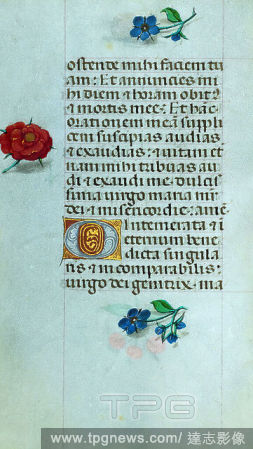 ostende mihi faciem tu
am: Et annuncies mi
hi diem & horam obit9
& mortis mee: Et hāc
orationem meā suppli
cem suscipias audias
& exaudias: & vitam et
nam mihi tribuas au
di & exaudi me dulcis
sima virgo maria mr̄
dei & misericordie: amē
O Intemerata & i
eternum bene
dicta singula
ris & incomparabilis:
virgo dei genitrix ma
TPG
www.tpgnews.com/ 達志影像